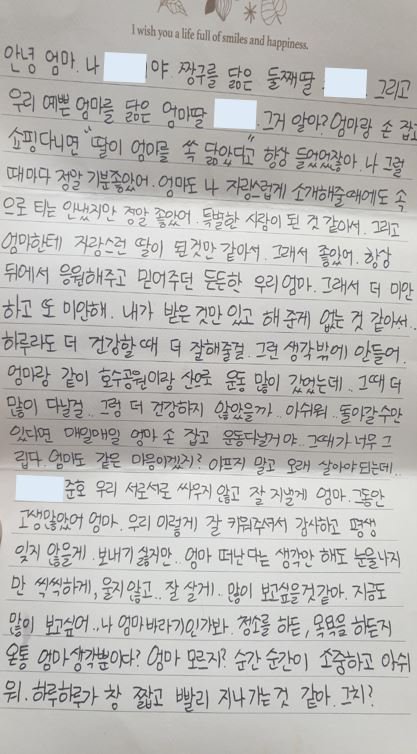 I wish you a life full of smiles and happiness.
안녕 엄마. 나 야 짱구를 닮은 둘째딸 그리고
우리 예쁜 엄마를 닮은 엄마딸 . 그거 알아? 엄마랑 손 잡고
쇼핑다니면 "딸이 엄마를 쏙 닮았다고" 항상 들었었잖아. 나 그럴
때마다 정말 기분좋았어. 엄마도 나 자랑스럽게 소개해줄때에도 속
으로 티는 안냈지만 정말 좋았어. 특별한 사람이 된 것 같아서. 그리고
엄마한테 자랑스런 딸이 된것만 같아서. 그래서 좋았어. 항상
뒤에서 응원해주고 믿어주던 든든한 우리엄마. 그래서 더 미안
하고 또 미안해. 내가 받은 것만 있고 해 준게 없는 것 같아서..
하루라도 더 건강할 때 더 잘해줄걸. 그런 생각밖에 안들어.
엄마랑 같이 호수공원이랑 산으로 운동 많이 갔었는데.. 그때 더
많이 다닐걸.. 그럼 더 건강하지 않았을까.. 아쉬워. 돌아갈수만
있다면 매일매일 엄마 손 잡고 운동다닐거야. 그때가 너무 그
립다. 엄마도 같은 마음이겠지? 아프지 말고 오래 살아야 되는데..
준호 우리 서로서로 싸우지 않고 잘 지낼게 엄마. 그동안
고생많았어 엄마. 우리 이렇게 잘 키워주셔서 감사하고 평생
잊지 않을게. 보내기 싫지만.. 엄마 떠난다는 생각만 해도 눈물나지
만 씩씩하게, 울지않고.. 잘 살게.. 많이 보고싶을것같아. 지금도
많이 보고싶어..나 엄마바라기인가봐. 청소를 하든, 목욕을 하든지
온통 엄마생각뿐이다? 엄마 모르지? 순간 순간이 소중하고 아쉬
워. 하루하루가 참 짧고 빨리 지나가는 것 같아. 그치?